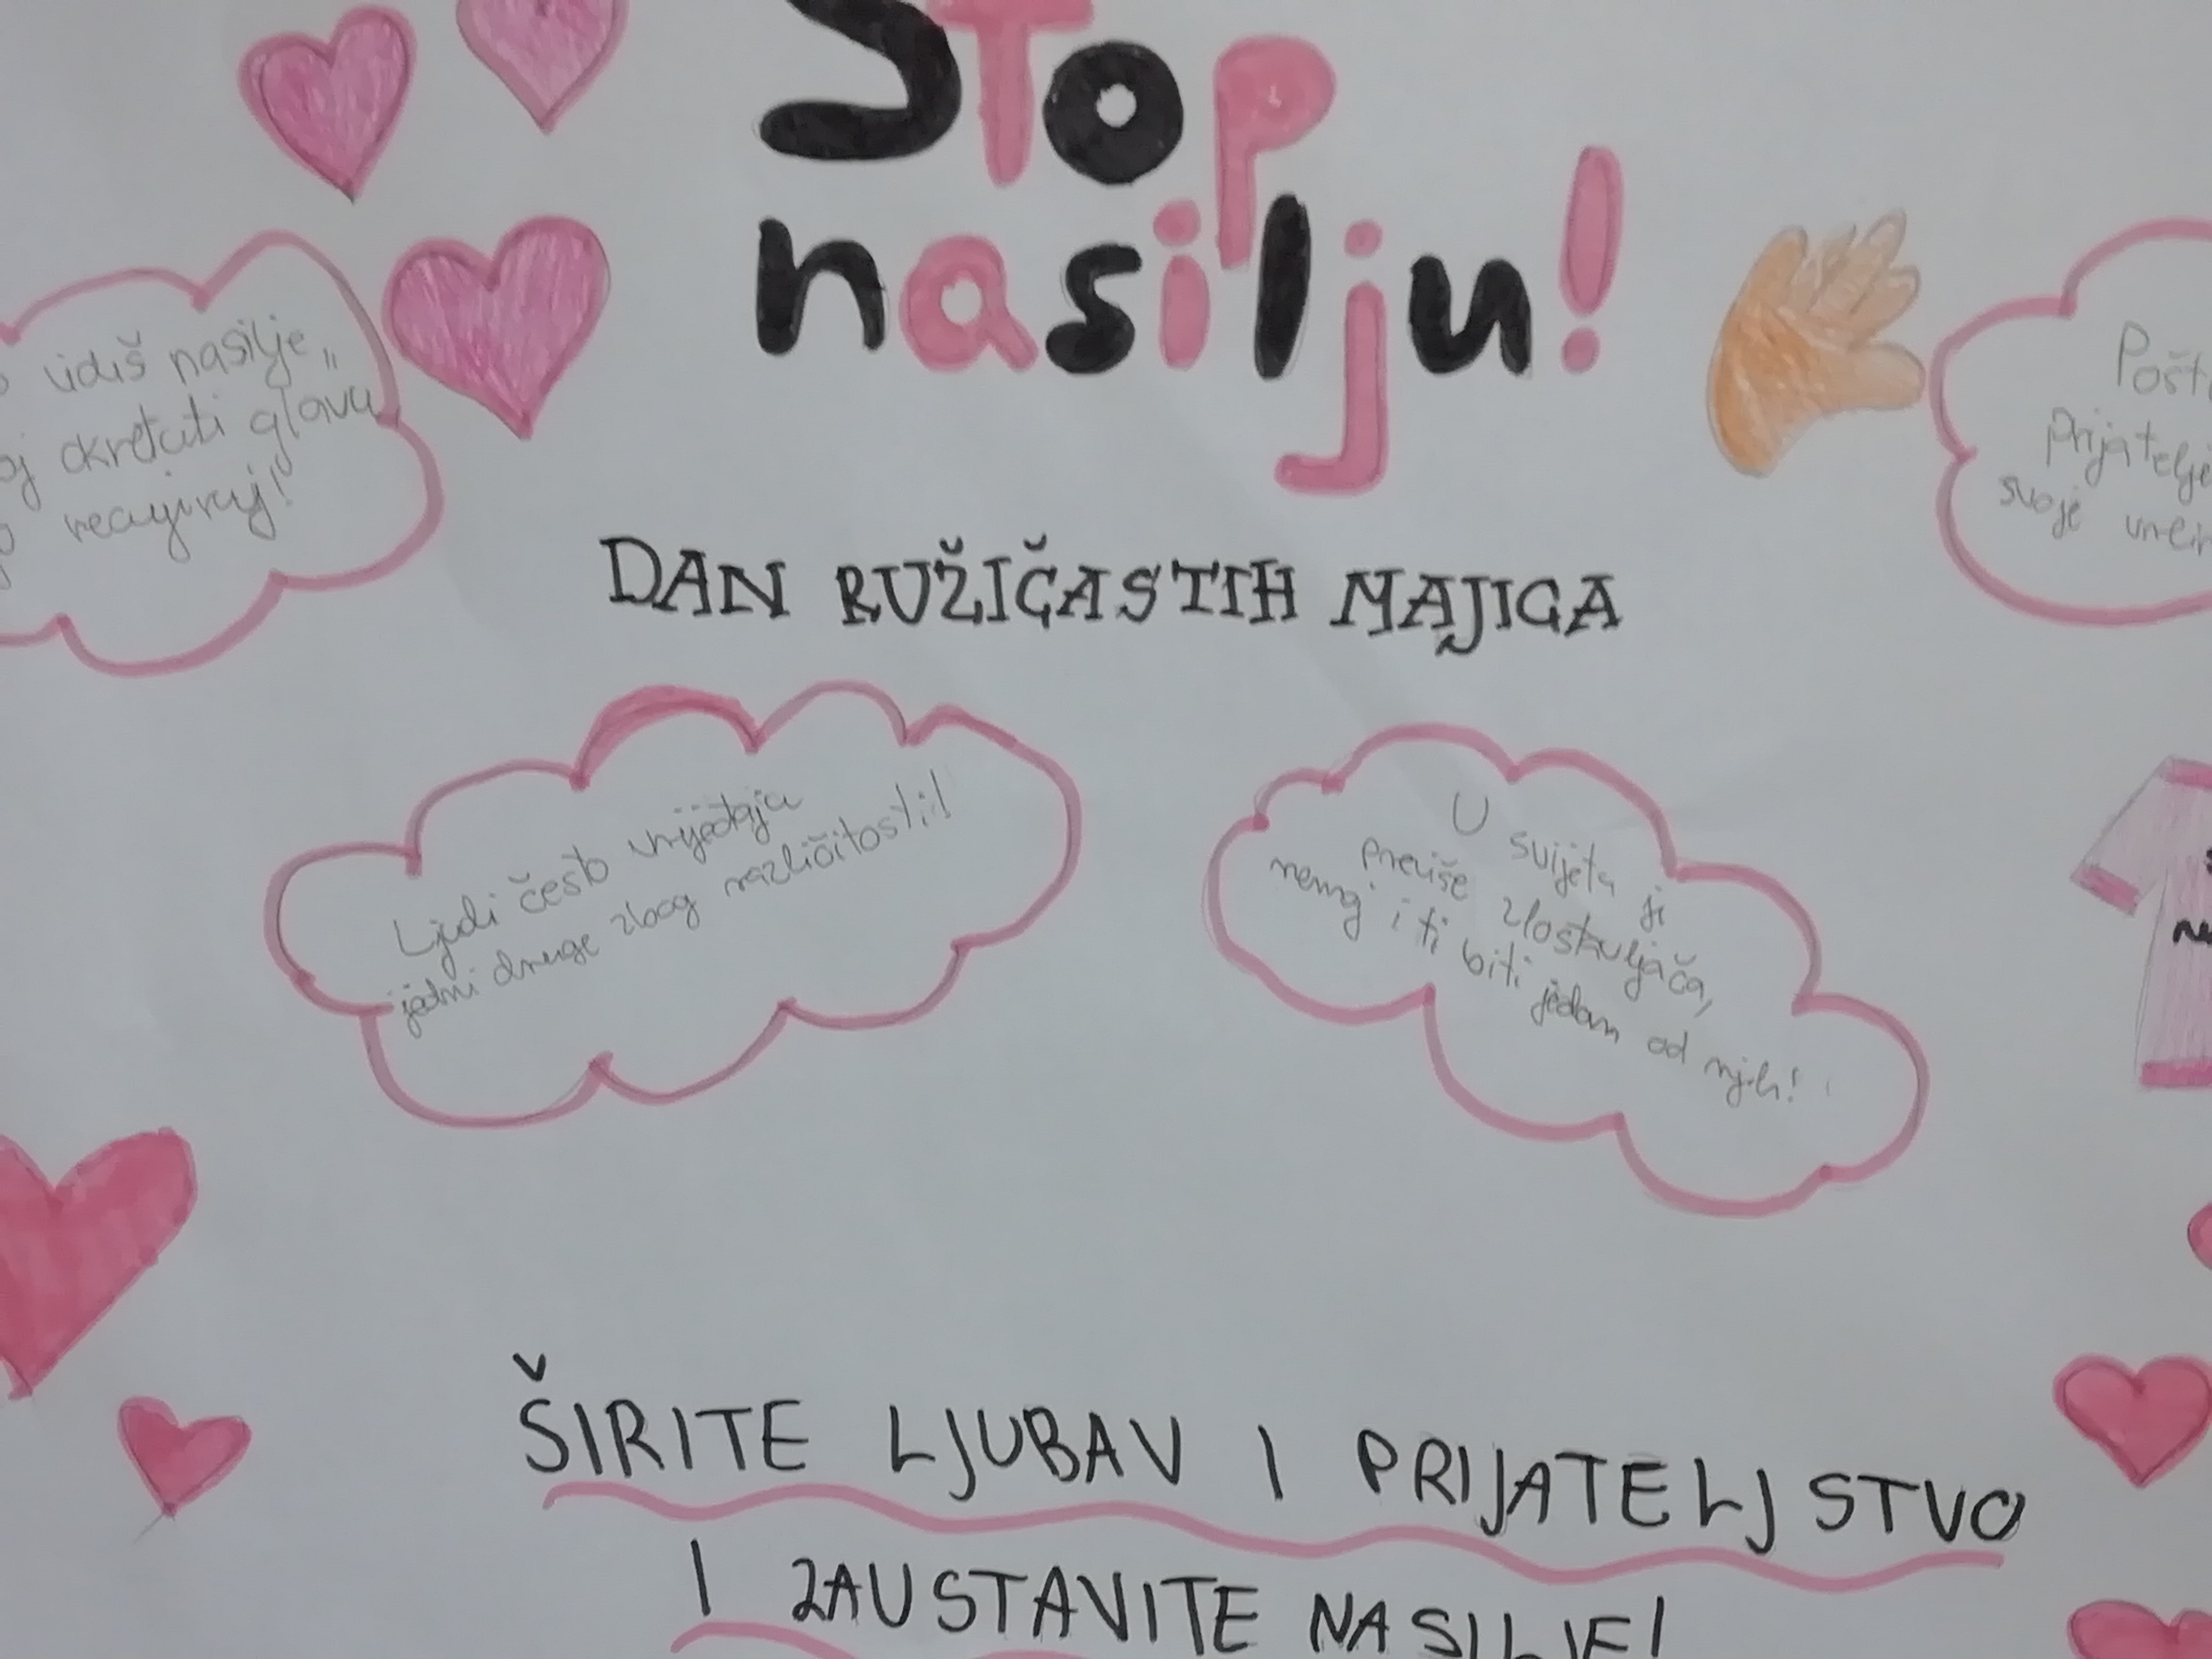 STOP
nasilju!
vidiš nasilje,
okretati glavu
reagiraj!
Prijatelje
svoje
DAN RUŽIČASTIH MAJICA
Ljudi često vrijeđaju
jedni druge zbog različitosti!
U svijetu je
previše zlostavljača,
nemoj i ti biti jedan od njih!
ŠIRITE LJUBAV I PRIJATELJSTVO
I ZAUSTAVITE NASILJE!